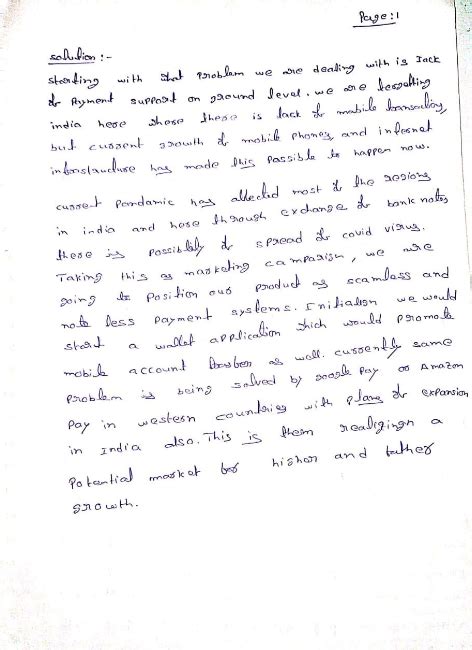 Page:1
solution :-
starting with that problem we are dealing with is lack
of Payment support on ground level. we are targetting
india here where there is lack of mobile transaction,
but current growth of mobile phones, and internet
infrastructure has made this possible to happen now.
current Pandamic has affected most of the regions
in india and here through exchange of bank notes
there is possiblity of spread of covid virus.
Taking this as marketing campaign, we are
going to position our product as seamless and
note less payment systems. Initially we would
start a wallet application which would promote
mobile account as well. currently same
problem is being solved by google pay or Amazon
Pay in western countries with plans of expansion
in India also. This is them realizing a
potential market for higher and futher
growth.